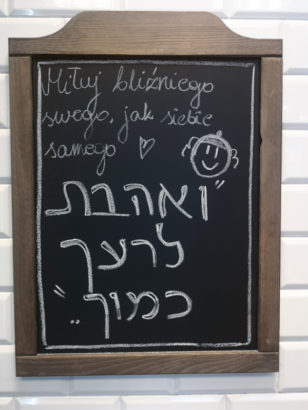 Miłuj bliźniego
swego, jak siebie
samego
"ואהבת
לרעך
כמוך"